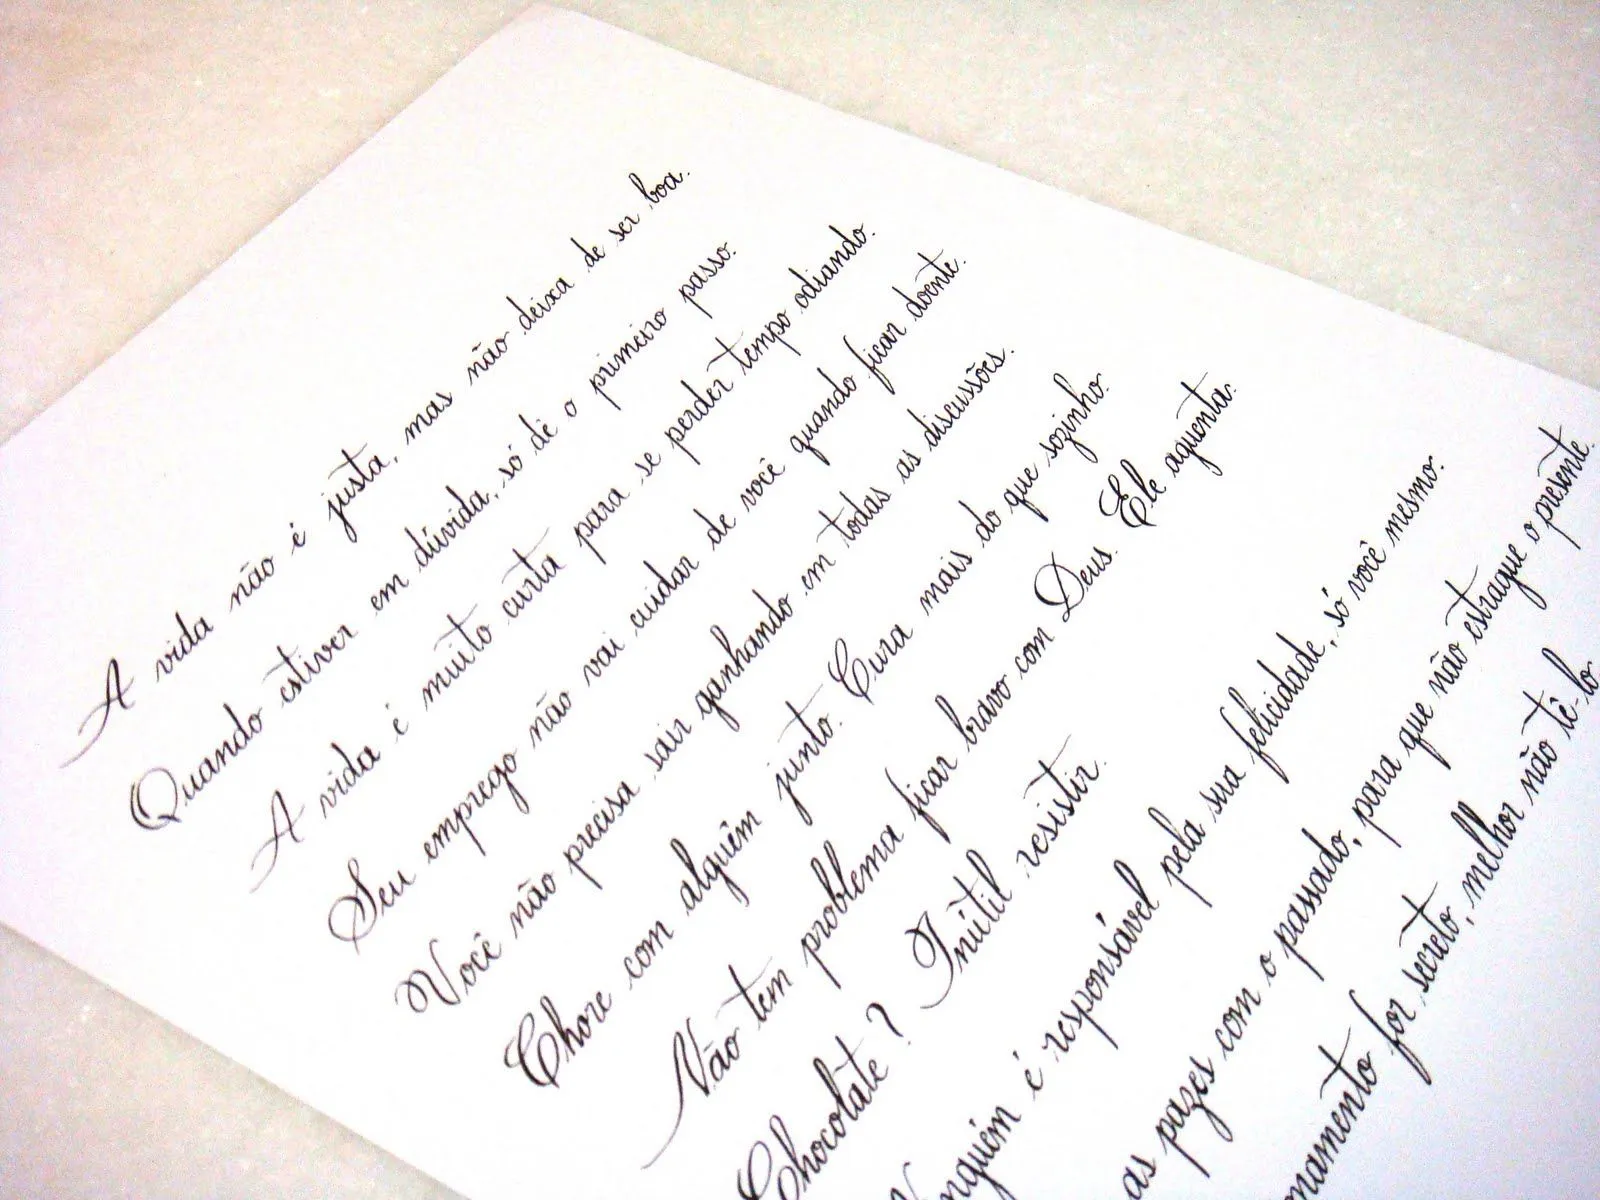 A vida não é justa, mas não deixa de ser boa.
Quando estiver em dúvida, só dê o primeiro passo.
A vida é muito curta para se perder tempo odiando.
Seu emprego não vai cuidar de você quando ficar doente.
Você não precisa sair ganhando em todas as discussões.
Chore com alguém junto. Cura mais do que sozinho.
Não tem problema ficar bravo com Deus. Ele aguenta.
Chocolate? Inútil resistir.
Ninguém é responsável pela sua felicidade, só você mesmo.
as pazes com o passado, para que não estrague o presente.
namento for secreto, melhor não tê-lo